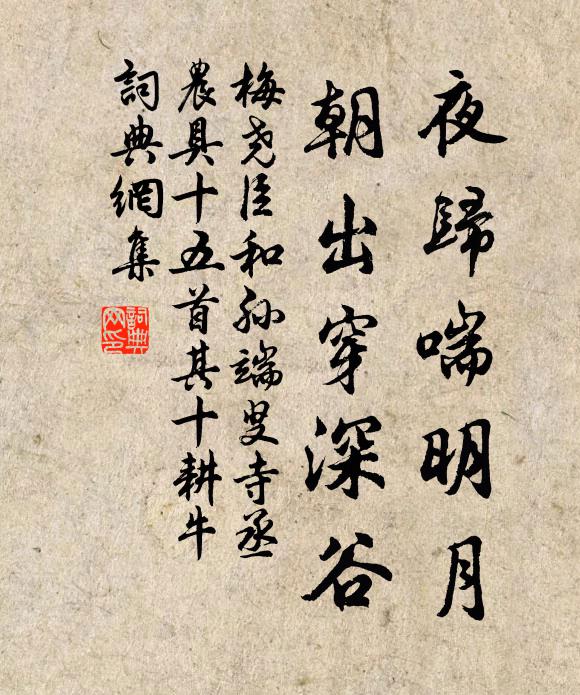 夜歸喘明月
朝出穿深谷
梅堯臣和孙端叟寺丞
農具十五首其十耕牛
詞典網集
詞典
网印